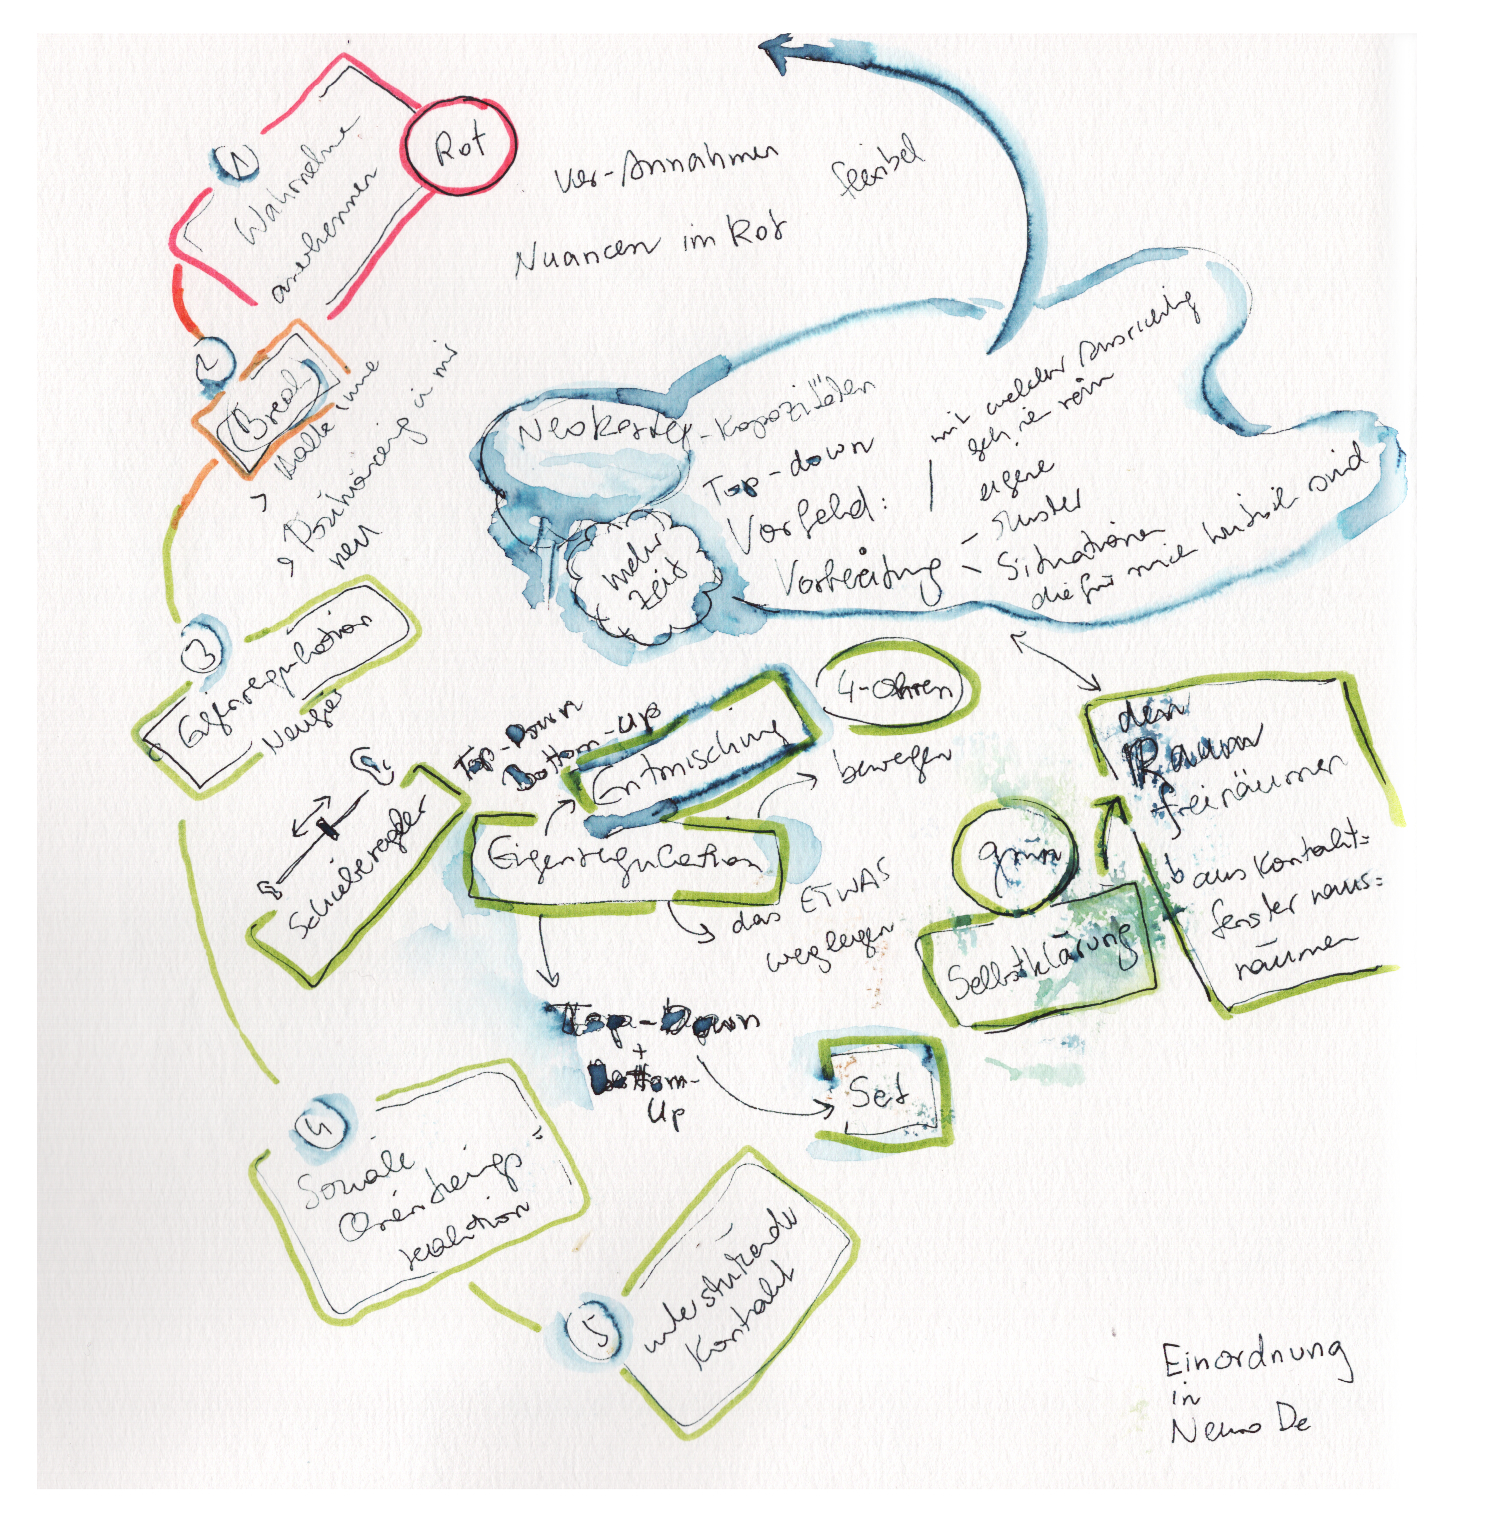 1
Wahrnehme
anerkennen
Rot
Ver-Annahmen
flexibel
Nuancen im Rot
2
Break
> Halte inne
> Positionierung in mir
neu
Neokortex-Kapazitäten
Top-down
Vorfeld:
Vorbereitung
mit welcher Ausrichtung
geh ich rein
eigene
Muster
- Situationen
die für mich kritisch sind
mehr
Zeit
3
Eigenregulation
Neugier
Schieberegler
Top-Down
Bottom-Up
Entmischung
4-Ohren
bewegen
Eigenregulation
das ETWAS
weglegen
Top-Down
+
Bottom-
Up
Set
grün
Selbstklärung
den
Raum
freiräumen
aus Kontakt=
fenster raus=
räumen
4
Soziale
Orientierungs=
reaktion
5
unterstützende
Kontakt
Einordnung
in
Neuro De